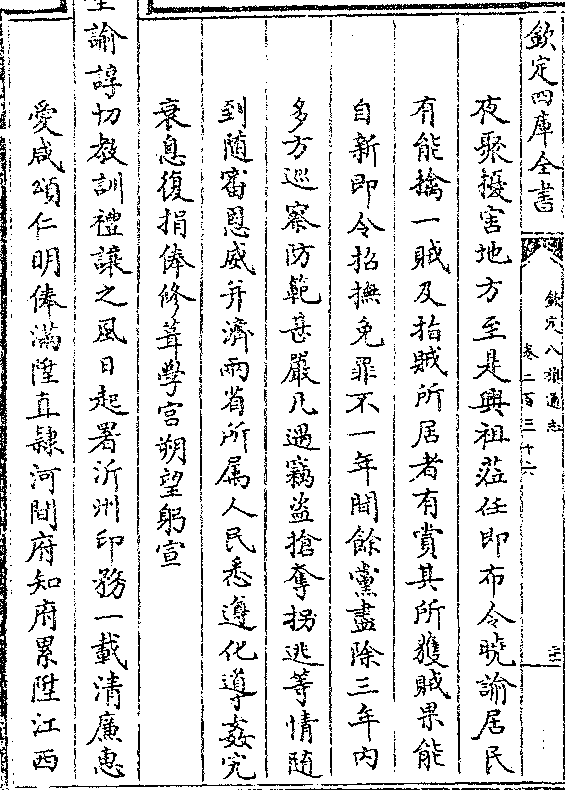 欽定四庫全書
欽定八旗通志
卷二百三十六
夜聚擾害地方至是興祖蒞任即布令曉諭居民
有能擒一賊及指賊所居者有賞其所獲賊果能
自新即令招撫免罪不一年間餘黨盡除三年内
多方巡察防範甚嚴凡遇竊盜搶奪拐逃等情隨
到隨審恩威并濟兩省所属人民悉遵化導姦宄
衰息復捐俸修葺學宮朔望躬宣
聖諭諄切教訓禮讓之風日起署沂州印務一載清廉惠
愛咸頌仁明俸滿陞直隸河間府知府累陞江西